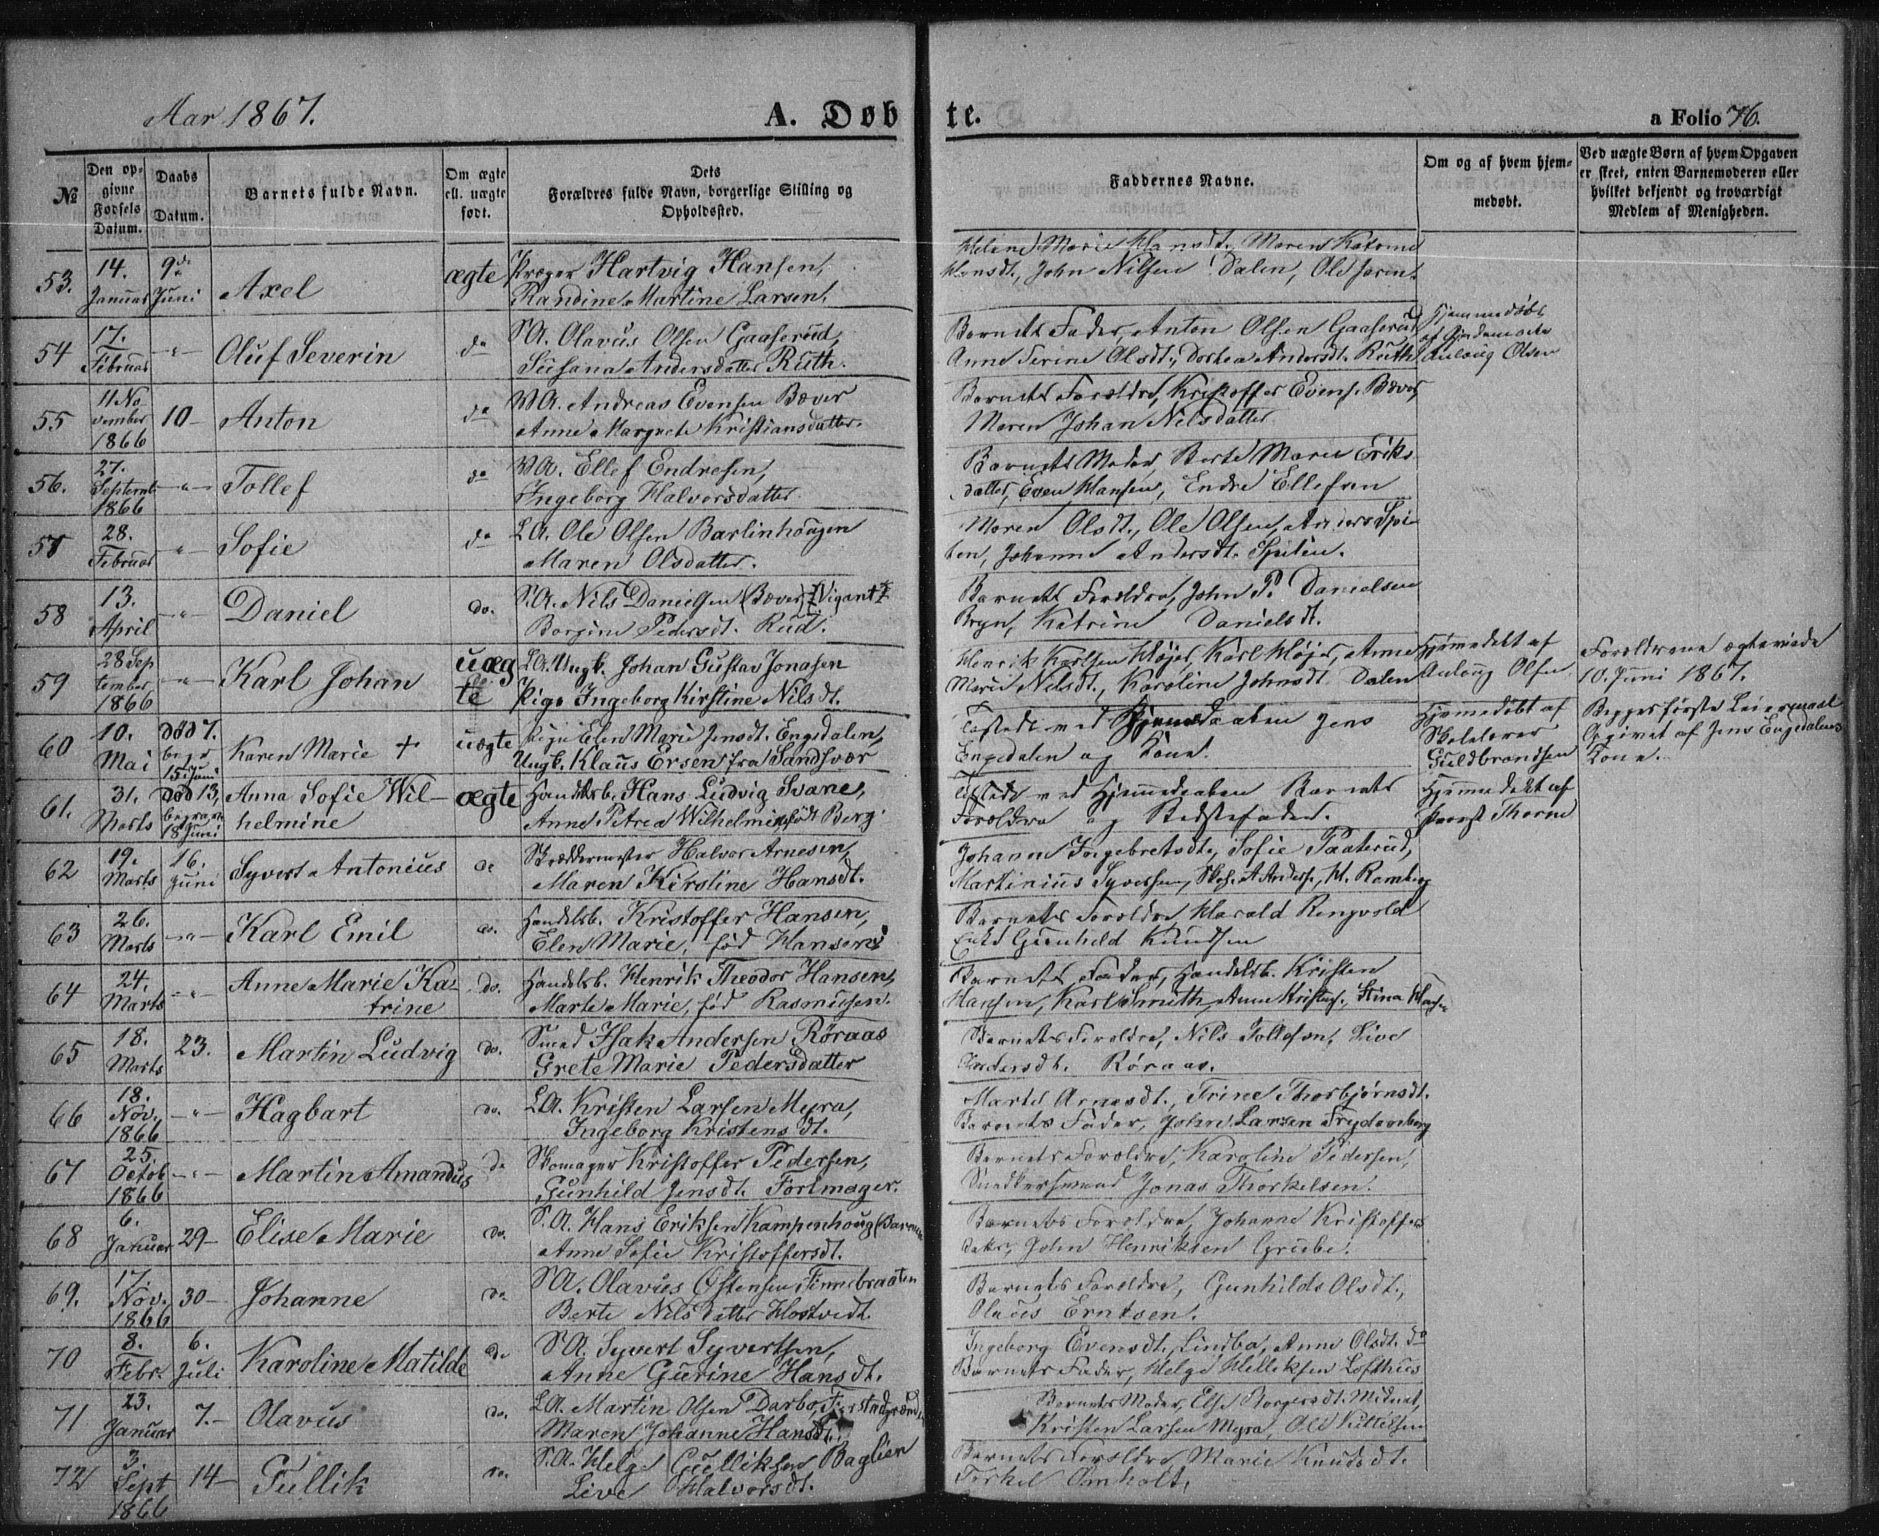 Aar 1867.
A. Døbte.
a Folio 76.
№
Den opgivne Fødsels Datum.
Daabs Datum.
Barnets fulde Navn.
Om ægte ell. uægte født.
Dets Forældres fulde Navn, borgerlige Stilling og Opholdssted.
Faddernes Navne.
Om og af hvem hjemmedøbt.
Ved uægte Børn af hvem Opgaven er skeet, enten Barnemoderen eller hvilket bekjendt og troværdigt Medlem af Menigheden.
53. 14. Januar 9de Juni Axel ægte Hartvig Hansen,
Randine Martine Larsen.
Marie Hansdt., Maren
Hansdt., John Nilsen Dalen, Ole
54 17. Februar -"- Oluf Severin do S.A. Olavus Olsen Gaaserud,
Susana Andersdatter Ruth.
Barnets Fader, Anton Olsen Gaaserud,
Anne Serine Olsdt., Dorthea Andersdt. Ruth
Hjemmedøbt
af Gjordemoder
Aulaug Olsen
55 11 November 1866 10- Anton do V.A. Andreas Evensen Bæver
Anne Margrete Kristiansdatter.
Barnets Forældre, Kristoffer Evens. Bæver
Maren Johan Nilsdatter
56. 27. Septemb. 1866 -"- Tollef do V.A. Ellef Endresen,
Ingeborg Halvorsdatter.
Barnets Moder, Berte Marie Eriks
datter, Even Hansen, Endre Ellefsen
57 28. Februar " Sofie do L.A. Ole Olsen Barlinhougen
Maren Olsdatter.
Maren Olsdt., Ole Olsen, Anders Spi-
ten, Johanne Andersdt. Spiten.
58 13. April -"- Daniel do. S.A. Nils Danielsen (Bæver) (Vigant)
Borgine Pedersdt. Rud.
Barnets Forældre, John P. Danielsen
Bryn, Katrine Danielsdt.
59 28 September 1866 -"- Karl Johan uægte L.A. Ungk. Johan Gustav Jonasen
Pige Ingeborg Kirstine Nilsdt.
Henrik Karlsen Højer, Karl Højer, Anne
Marie Nilsdt., Karoline Johnsdt. Dalen
Hjemmedøbt af
Aulaug Olsen
Forældrene ægteviede
10. Juni 1867.
60 10. Mai død 7. begr. 15. Juni Karen Marie + uægte Pige Elen Marie Jensdt. Engedalen,
Ungk. Klaus Ersen fra Sandsvær
Tilstede ved Hjemmedaaben Jens
Engedalen og Kone.
Hjemmedøbt af
Skolelærer
Guldbrandsen
Begges første Leiermaal
Opgivet af Jens Engedalens
Kone.
61. 31. Marts død 13, begraven 18 Juni Anna Sofie Wil-
helmine ægte Handelsb. Hans Ludvig Svane,
Anne Petrea Wilhelmine født Berg.
Tilstede ved Hjemmedaaben Barnets
Forældre og Bedstefader.
Hjemmedøbt af
Provst Thorne
62 19. Marts 16. Juni Syvert Antonius do Skræddermester Halvor Arnesen,
Maren Kirstine Hansdt.
Johanne Ingebretsdt., Sofie Paaterud,
Martinius Syversen, A. Anders., H. Ramberg
63 26. Marts -"- Karl Emil do. Handelsb. Kristoffer Hansen,
Elen Marie, fød Hansen
Barnets Forældre, Harald Ringvold
Enke Gunhild Knudsen
64 24. Marts -"- Anne Marie Ka-
trine do. Handelsb. Henrik Theodor Hansen,
Marte Marie, fød Rasmusen.
Barnets Fader, Handelsb. Kristen
Hansen, Karl Smith, Anne Kristens., Stina Hansen
65 18. Marts 23. Martin Ludvig do. Smed Isak Andersen Røraas
Grete Marie Pedersdatter
Barnets Forældre, Nils Tollefsen, Live
Andersdt. Røraas.
66 18. Nov. 1866 -"- Hagbart do. L.A. Kristen Larsen Myra,
Ingeborg Kristensdt.
Marte Arnesdt., Trine Thorbjørnsdt.
Barnets Fader, John Larsen Frydenberg
67 25. Octob 1866 -"- Martin Amandus do Skomager Kristoffer Pedersen,
Gunhild Jensdt. Formager.
Barnets Forældre, Karoline Pedersen,
Snedkersvend Jonas Thorkelsen.
68 6. Januar 29- Elise Marie do. S.A. Hans Eriksen Kampenhoug
Anne Sofie Kristoffersdt.
Barnets Forældre, Johanne Kristoffers
datter, John Henriksen Grube.
69. 17. Nov. 1866 30- Johanne do S.A. Olavus Østensen Finnebraaten
Berte Nilsdatter Hostvedt.
Barnets Forældre, Gunhild Olsdt.,
Olaus Erntsen.
70 8. Febr. 6. Juli Karoline Matilde do S.A. Syvert Syvertsen,
Anne Gurine Hansdt.
Ingeborg Evensdt. Lindbo, Anne Olsdt. do
Barnets Fader, Helge Helliksen Lofthus
71 23. Januar 7.- Olavus do. L.A. Martin Olsen Darbo,
Maren Johanne Hansdt.
Barnets Moder, Else Borgersdt. Midnæt,
Kristen Larsen Myra, Ole Kittilsen
72 3. Sept 1866 14- Gullik do. S.A. Helge Gulliksen Baglien
Live Halvorsdt.
Barnets Forældre Marie Knudsdt.
Torkel Omholt.